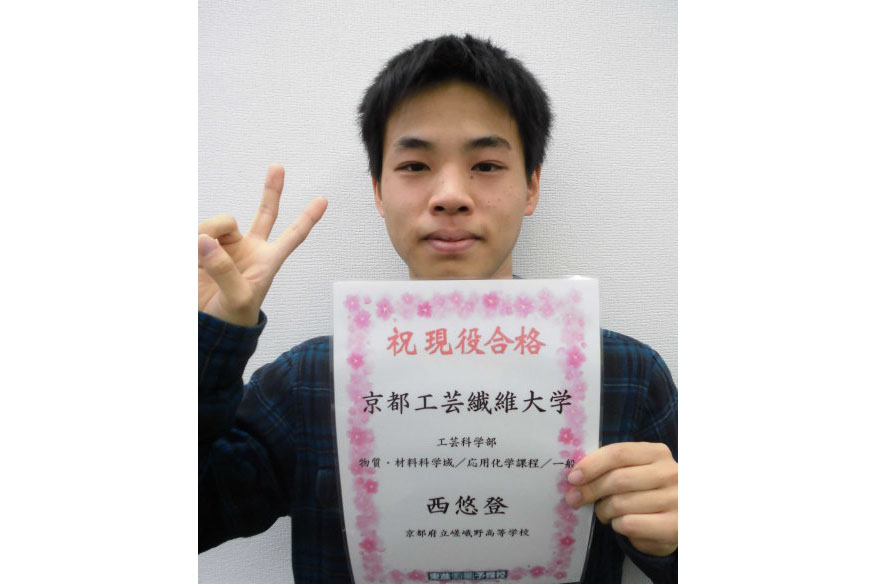 祝現役合格
京都工芸繊維大学
工芸科学部
物質・材料科学域／応用化学課程／一般
西悠登
京都府立嵯峨野高等学校
東進衛星予備校